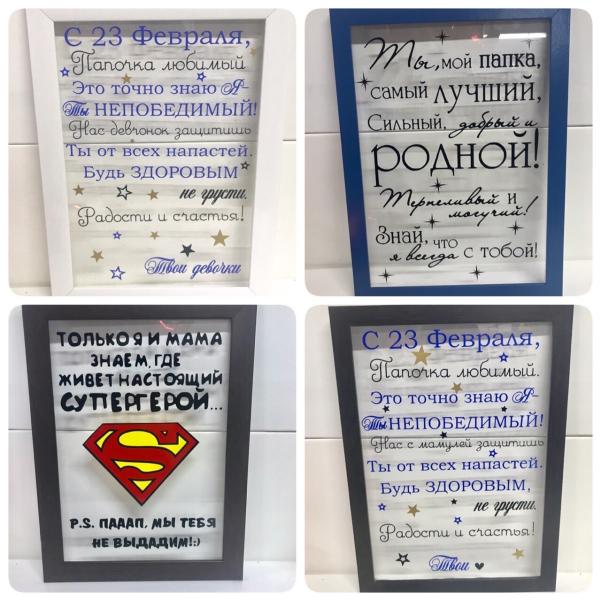 С 23 Февраля,
Папочка любимый
Это точно знаю Я-
Ты НЕПОБЕДИМЫЙ!
Нас девчонок защитишь
Ты от всех напастей.
Будь ЗДОРОВЫМ
не грусти.
Радости и счастья!
Твои девочки
Ты, мой папка,
самый лучший,
Сильный, добрый и
РОДНОЙ!
Терпеливый и
могучий!
Знай, что
я всегда с тобой!
ТОЛЬКО Я И МАМА
ЗНАЕМ, ГДЕ
ЖИВЕТ НАСТОЯЩИЙ
СУПЕРГЕРОЙ...
S
P.S. ПАААП, МЫ ТЕБЯ
НЕ ВЫДАДИМ!:)
С 23 Февраля,
Папочка любимый.
Это точно знаю Я-
Ты НЕПОБЕДИМЫЙ!
Нас с мамулей защитишь
Ты от всех напастей.
Будь ЗДОРОВЫМ,
не грусти.
Радости и счастья!
Твои